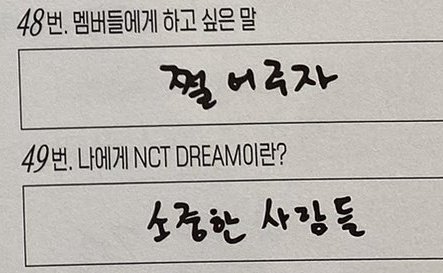 48번. 멤버들에게 하고 싶은 말
쩔어주자
49번. 나에게 NCT DREAM이란?
소중한 사람들